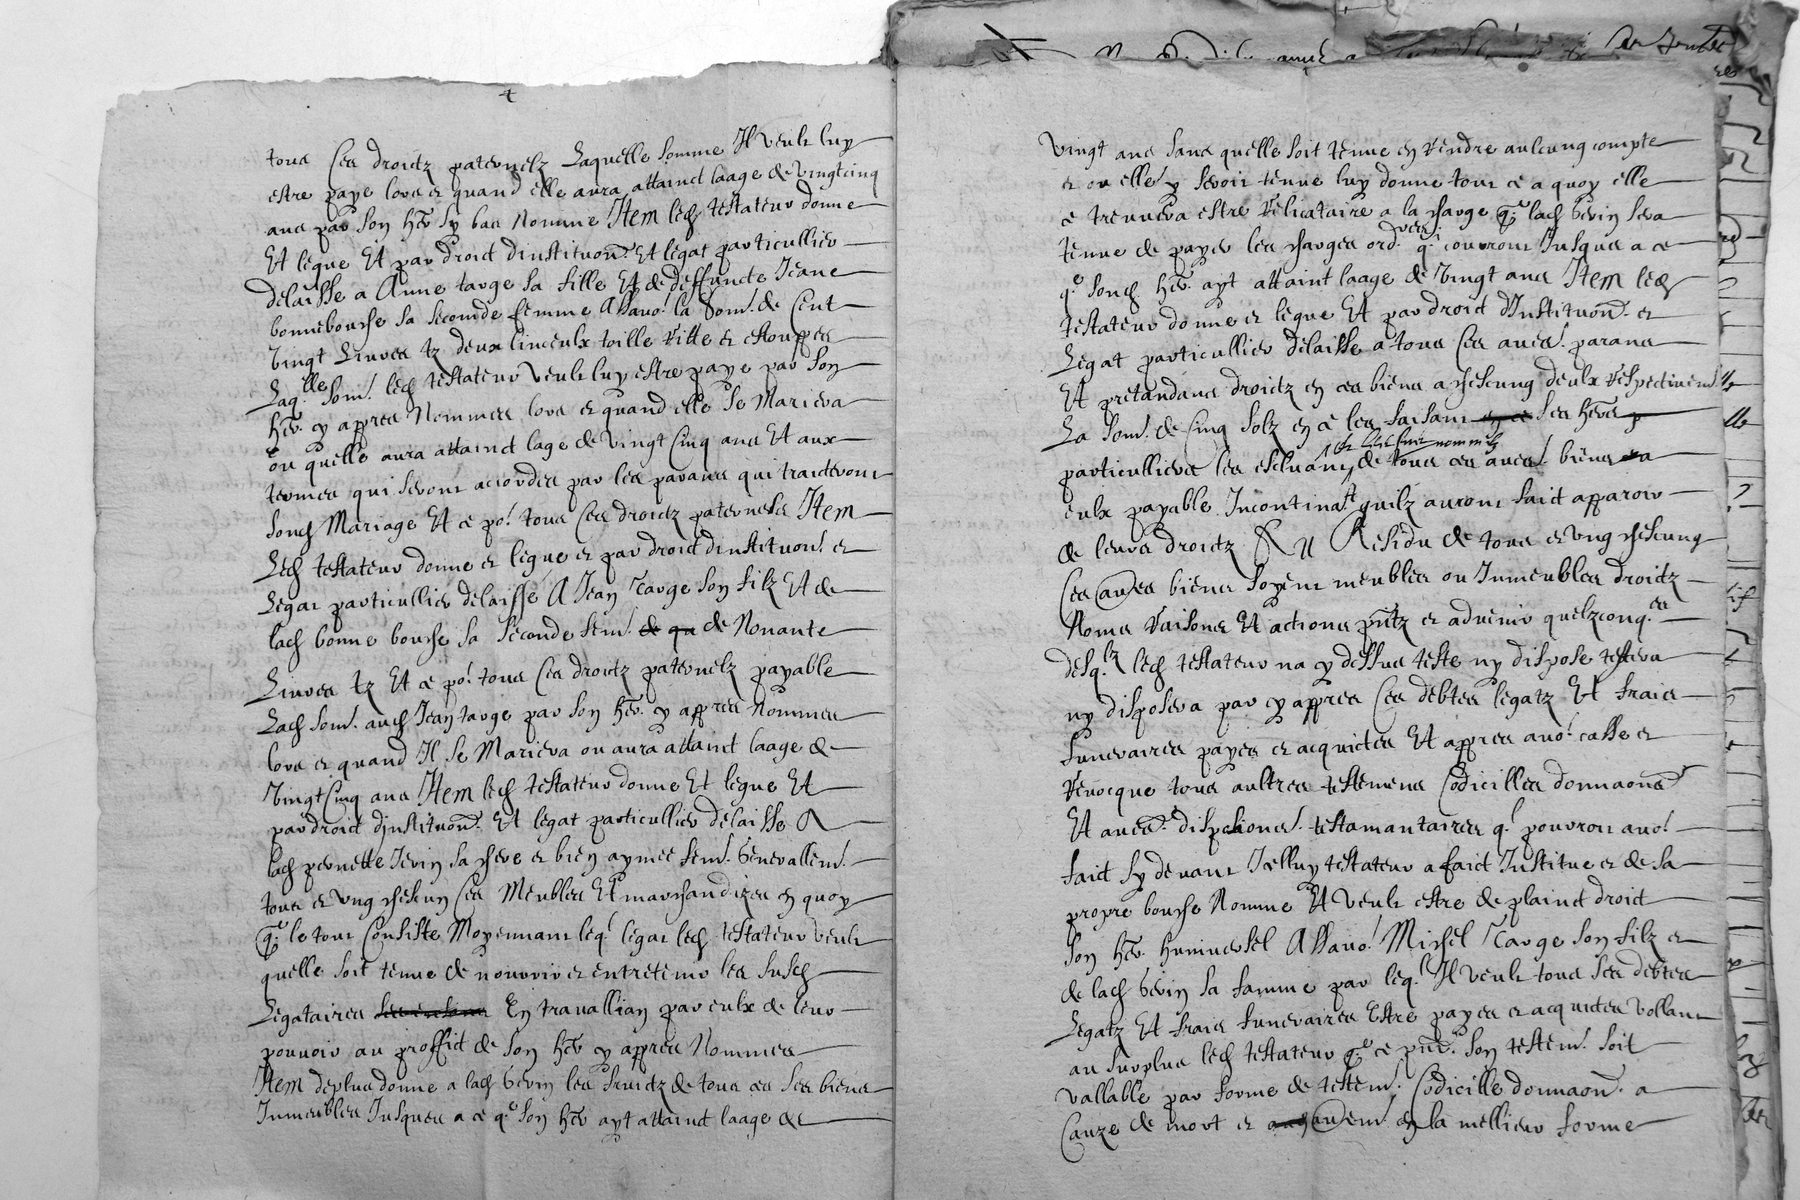 tous ses droictz paternelz Laquelle somme Il veult luy
estre paye lors et quand elle aura attainct laage de vingtcinq
ans par son her sy bas nomme Item led testateur donne
Et legue Et par droict dinstituon Et legat particullier
delaisse a Anne targe sa fille Et de deffuncte Jeane
bonnebourse sa seconde femme Assavo.r la som. de Cent
vingt Livres tz deux linceulx toille ritte et estouppes
Laq.lle som. led testateur veult luy estre paye par son
her. cy appres Nommes lors et quand elle se Mariera
ou quelle aura attainct lage de vingt Cinq ans Et aux
termes qui seront accordes par les parans qui traicteront
soud Mariage Et a po.r tous ses droictz paternels Item
Led testateur donne et legue et par droict dinstituon. et
Legat particullier delaisse A Jean Targe son filz Et de
lad bonne bourse sa seconde fem. de qu de Nonante
Livres tz Et a po.r tous ses droictz paternelz payable
Lad som. aud Jean targe par son her. cy appres Nommes
lors et quand Il se Mariera ou aura attainct laage de
Vingt Cinq ans Item led testateur donne Et legue Et
par droict dinstituon. Et legat particullier delaisse A
lad pernette Sevin sa chere et bien aymee fem. Generallem.t
tous et ung chescun ses Meubles Et marchandizes en quoy
q. le tout Consiste Moyennant leq.l legat led testateur veult
quelle soit tenue de nourrir et entretenir les susd
Legataires En travallian par eulx de leur
pouvoir au proffict de son her cy appres Nommes
Item deplus donne a lad Sevin les fruictz de tous ces ses biens
Immeubles Jusques a ce q. son her ayt attainct laage de
vingt ans sans quelle soit tenue en rendre aulcung compte
et ou elle y seroit tenue luy donne tout ce a quoy elle
ce treuvera estre relicataire a la charge q. lad Sevin sera
tenue de payer les charges ord.res q. courront Jusques a ce
q. soud her. ayt attaint laage de vingt ans Item led
testateur donne et legue Et par droict dInstituon. et
Legat particullier delaisse a tous ses aues. parans
Et pretandans droictz en ces biens a chescung deulx respectivem.t
La som. de Cinq solz en ce les faisant ses hers
particulliers les excluant de tous ces aues. biens
eulx payable Incontina.t quilz auront faict apparoir
de leurs droictz Au Residu de tous et ung chescung
ses aues biens soyent meubles ou Inmeubles droictz
Noms raisons Et actions pntz et advenir quelzconq.es
desq.lz led testateur na cy dessus teste ny dispose testera
ny disposera par cy appres ses debtes legatz Et frais
funeraires payes et acquictes Et appres avo.r casse et
revocque tous aultres testemens Codicilles donnaons
Et aues. dispotions. testamantaires q.l pourroit avo.r
faict sy devant Icelluy testateur a faict Institue et de sa
propre bouche Nomme Et veult estre de plainct droict
son her. huniversel Assavo.r Michel Targe son filz et
de lad Sevin sa famme par leq.l Il veult tous ses debtes
Legatz Et frais funeraires Estre payes et acquictes vollant
au surplus led testateur q. ce pnt. son testem.t soit
vallable par forme de testem.t Codicille donnaon. a
Cauze de mort et autrem.t en la mellieur forme